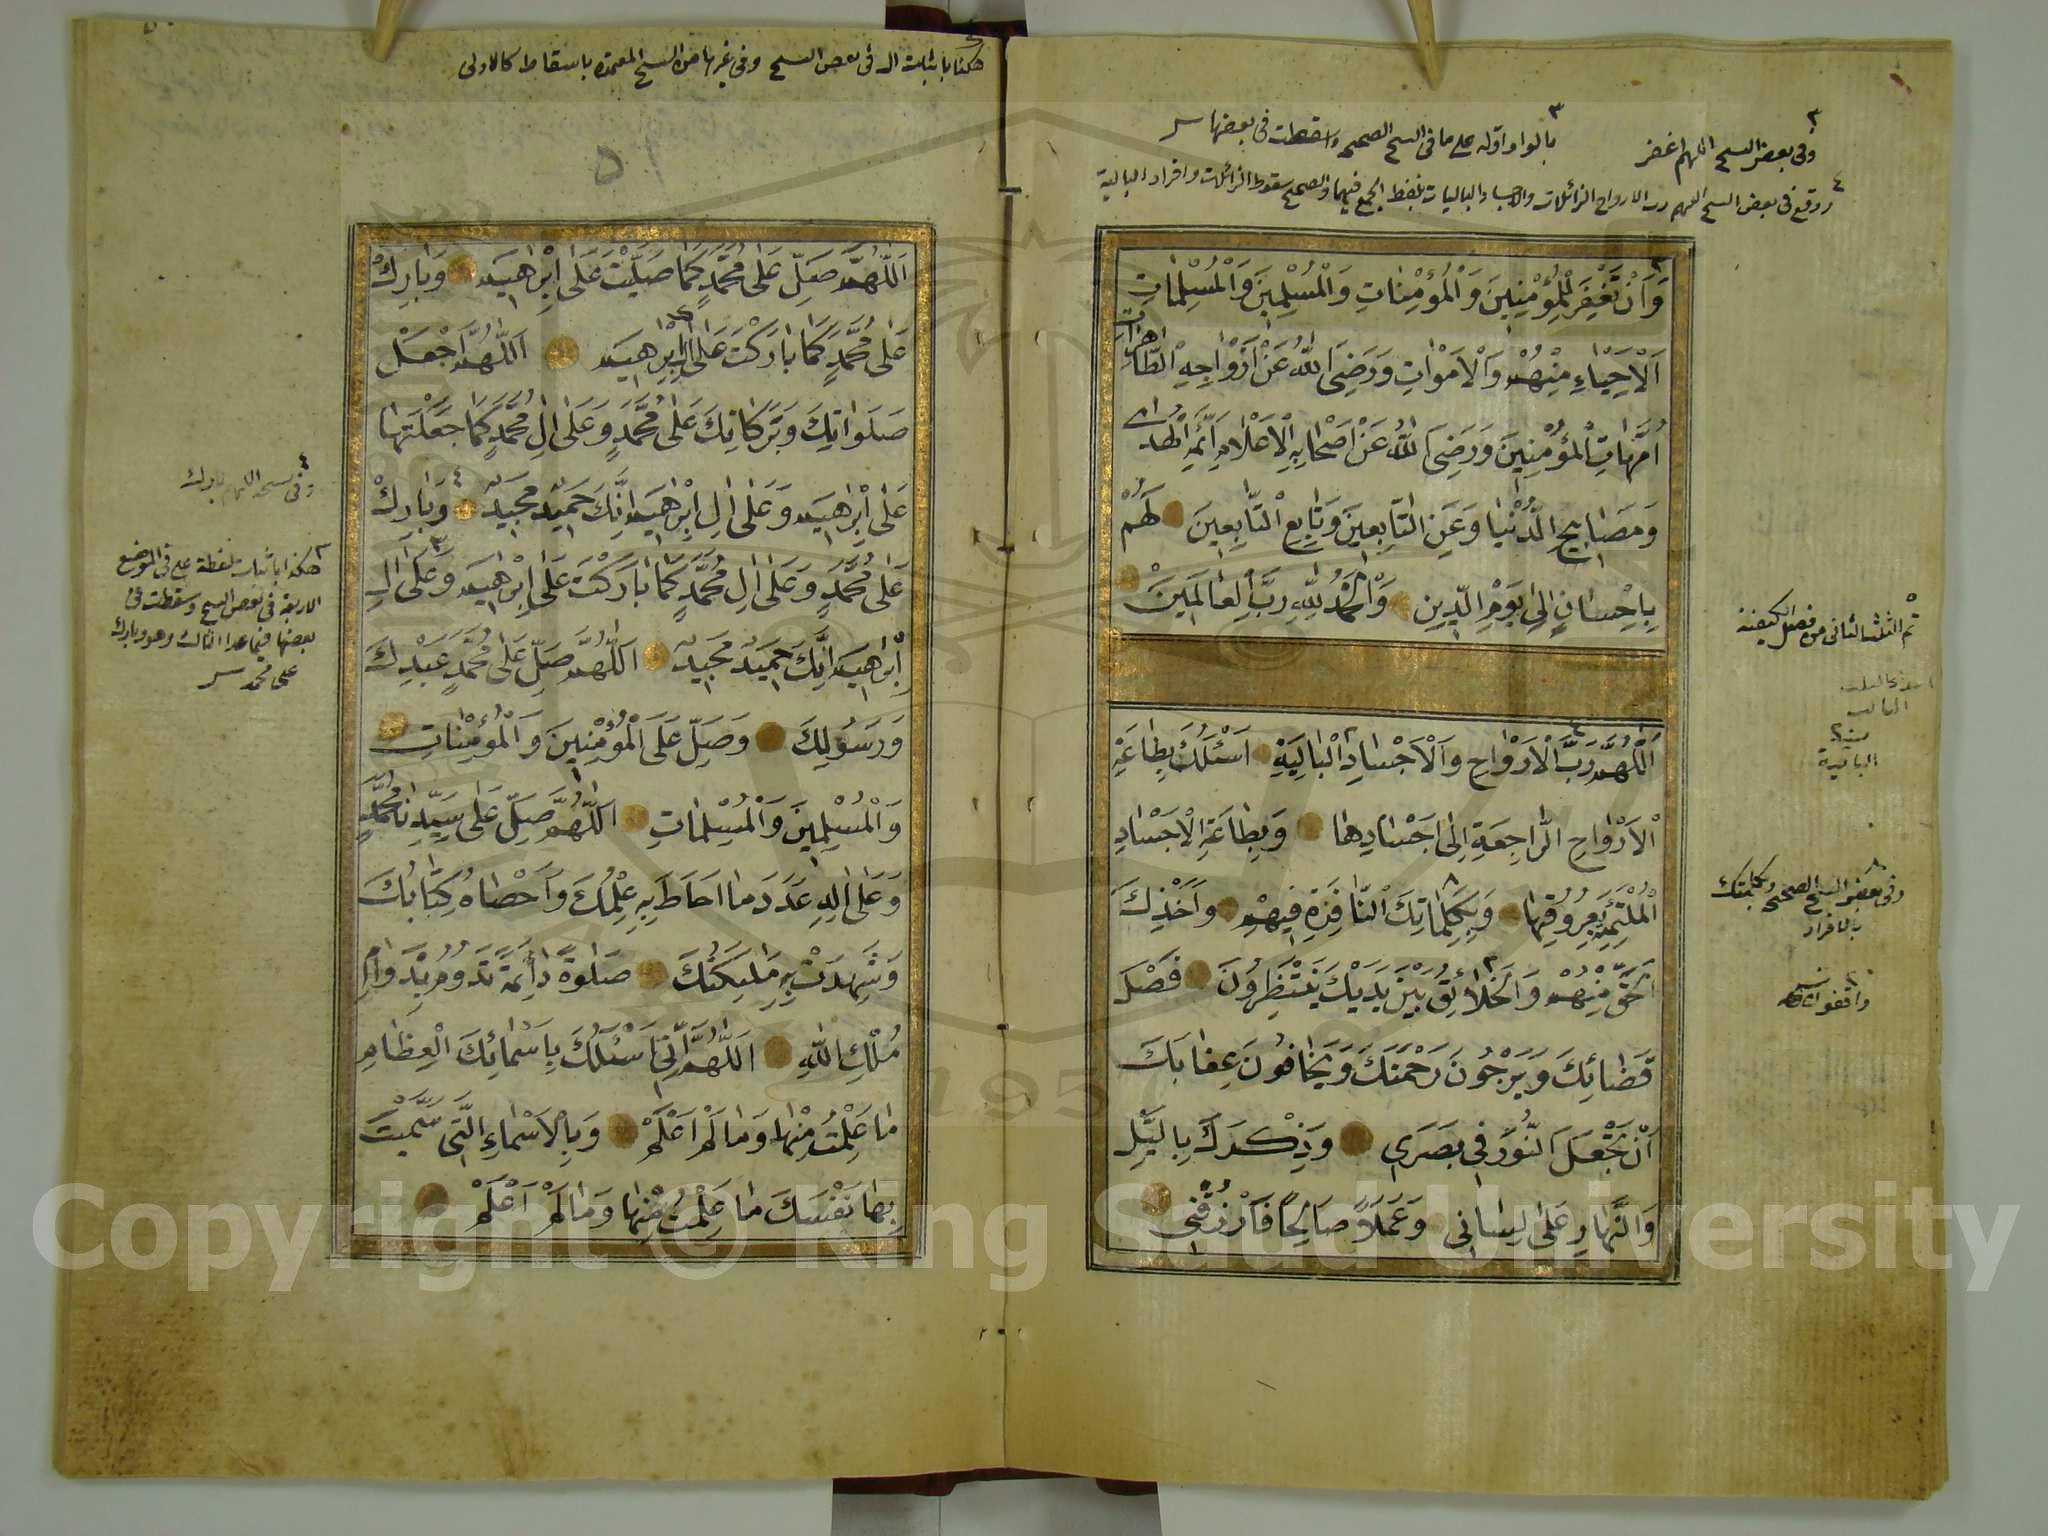 وفي بعض النسخ اللهم اغفر
بالواو اوله على ما في النسخ الصحيحة واسقطت في بعضها
ووقع في بعض النسخ اللهم رب الارواح الزائلات والاجساد الباليات بلفظ الجمع فيهما والصحيح سقوط الزائلات وافراد البالية
وَاَنْ تَغْفِرَ لِلْمُؤْمِنِينَ وَالْمُؤْمِنَاتِ وَالْمُسْلِمِينَ وَالْمُسْلِمَاتِ
اَلْاَحْيَاءِ مِنْهُمْ وَالْاَمْوَاتِ وَرَضِيَ اللّٰهُ عَنْ اَزْوَاجِهِ الطَّاهِرَاتِ
اُمَّهَاتِ الْمُؤْمِنِينَ وَرَضِيَ اللّٰهُ عَنْ اَصْحَابِهِ الْاَعْلَامِ اَئِمَّةِ الْهُدٰى
وَمَصَابِيحِ الدُّنْيَا وَعَنِ التَّابِعِينَ وَتَابِعِ التَّابِعِينَ لَهُمْ
بِاِحْسَانٍ اِلٰى يَوْمِ الدِّينِ وَالْحَمْدُ لِلّٰهِ رَبِّ الْعَالَمِينَ
تم الثلث الثاني من فصل الكيفية
اَللّٰهُمَّ رَبَّ الْاَرْوَاحِ وَالْاَجْسَادِ الْبَالِيَةِ اَسْئَلُكَ بِطَاعَةِ
الْاَرْوَاحِ الرَّاجِعَةِ اِلٰى اَجْسَادِهَا وَبِطَاعَةِ الْاَجْسَادِ
الْمُلْتَئِمَةِ بِعُرُوقِهَا وَبِكَلِمَاتِكَ النَّافِذَةِ فِيهِمْ وَاَخْذِكَ
الْحَقَّ مِنْهُمْ وَالْخَلَائِقُ بَيْنَ يَدَيْكَ يَنْتَظِرُونَ فَصْلَ
قَضَائِكَ وَيَرْجُونَ رَحْمَتَكَ وَيَخَافُونَ عِقَابَكَ
اَنْ تَجْعَلَ النُّورَ فِي بَصَرِي وَذِكْرَكَ بِاللَّيْلِ
وَالنَّهَارِ عَلٰى لِسَانِي وَعَمَلًا صَالِحًا فَارْزُقْنِي
البالية
وفي بعض النسخ الصحيحة وبكلمتك
بالافراد
هكذا باثبات ال في بعض النسخ وفي غيرها من النسخ المعتمدة باسقاط كالاولى
اَللّٰهُمَّ صَلِّ عَلٰى مُحَمَّدٍ كَمَا صَلَّيْتَ عَلٰى اِبْرٰهِيمَ وَبَارِكْ
عَلٰى مُحَمَّدٍ كَمَا بَارَكْتَ عَلٰى اٰلِ اِبْرٰهِيمَ اَللّٰهُمَّ اجْعَلْ
صَلَوَاتِكَ وَبَرَكَاتِكَ عَلٰى مُحَمَّدٍ وَعَلٰى اٰلِ مُحَمَّدٍ كَمَا جَعَلْتَهَا
عَلٰى اِبْرٰهِيمَ وَعَلٰى اٰلِ اِبْرٰهِيمَ اِنَّكَ حَمِيدٌ مَجِيدٌ وَبَارِكْ
عَلٰى مُحَمَّدٍ وَعَلٰى اٰلِ مُحَمَّدٍ كَمَا بَارَكْتَ عَلٰى اِبْرٰهِيمَ وَعَلٰى اٰلِ
اِبْرٰهِيمَ اِنَّكَ حَمِيدٌ مَجِيدٌ اَللّٰهُمَّ صَلِّ عَلٰى مُحَمَّدٍ عَبْدِكَ
وَرَسُولِكَ وَصَلِّ عَلَى الْمُؤْمِنِينَ وَالْمُؤْمِنَاتِ
وَالْمُسْلِمِينَ وَالْمُسْلِمَاتِ اَللّٰهُمَّ صَلِّ عَلٰى سَيِّدِنَا مُحَمَّدٍ
وَعَلٰى اٰلِهِ عَدَدَ مَا اَحَاطَ بِهِ عِلْمُكَ وَاَحْصَاهُ كِتَابُكَ
وَشَهِدَتْ بِهِ مَلٰئِكَتُكَ صَلٰوةً دَائِمَةً تَدُومُ بِدَوَامِ
مُلْكِ اللّٰهِ اَللّٰهُمَّ اِنِّي اَسْئَلُكَ بِاَسْمَائِكَ الْعِظَامِ
مَا عَلِمْتُ مِنْهَا وَمَا لَمْ اَعْلَمْ وَبِالْاَسْمَاءِ الَّتِي سَمَّيْتَ
بِهَا نَفْسَكَ مَا عَلِمْتُ مِنْهَا وَمَا لَمْ اَعْلَمْ
وفي نسخة اللهم بارك
هكذا باثبات لفظة على في المواضع
الاربعة في بعض النسخ وسقطت في
بعضها فيما عدا الثالث وهو وبارك
على محمد
Copyright © King Saud University
1957